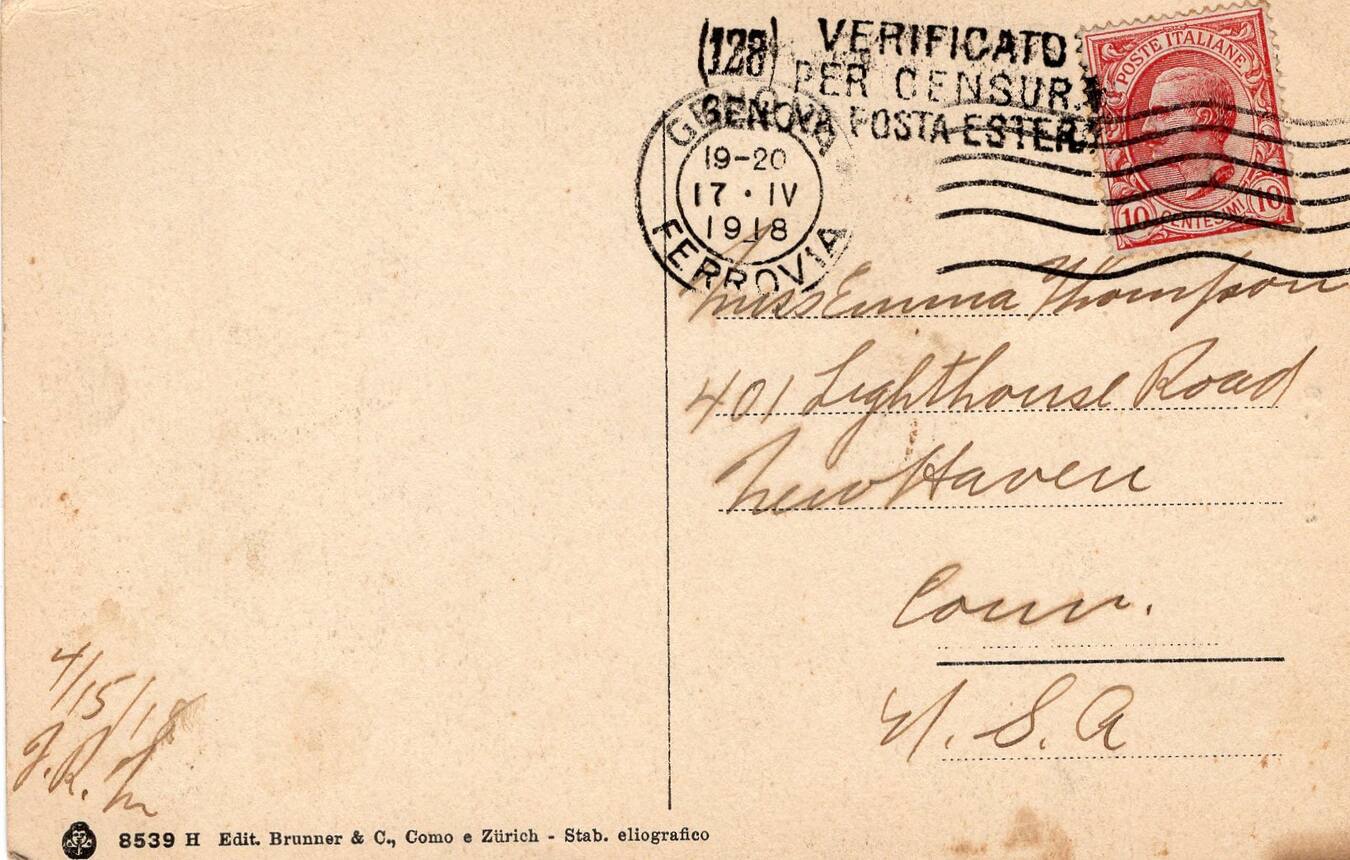 (128) VERIFICATO
PER CENSURA
GENOVA POSTA ESTERA
POSTE ITALIANE
10 CENTESIMI 10
GENOVA
19-20
17 · IV
1918
FERROVIA
Miss Emma Thompson
401 Lighthouse Road
New Haven
Conn.
U. S. A
4/15/18
J. R. M
8539 H Edit. Brunner & C., Como e Zürich - Stab. eliografico